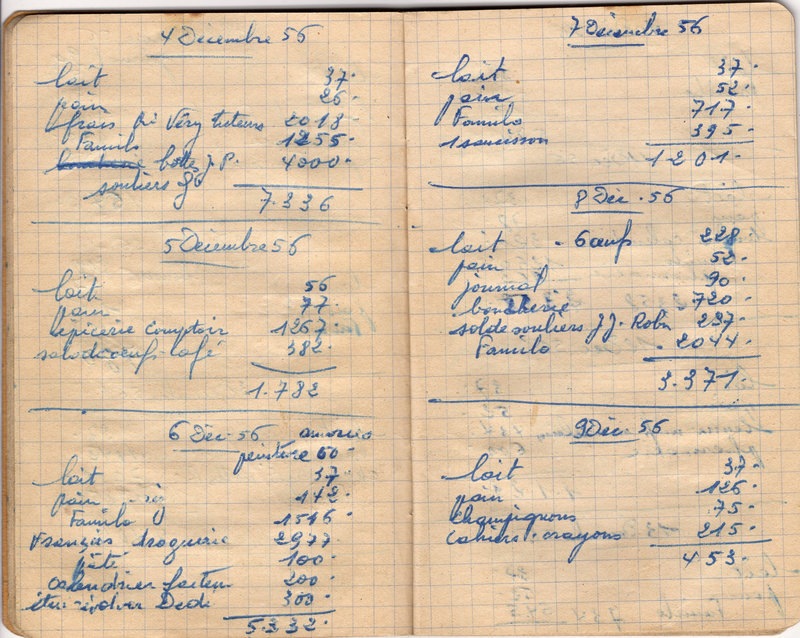 4 Décembre 56
lait 37.
pain 26.
frais Véry tuteurs 2018
Familo 1255.
botte J.P. 4000.
souliers
7.336
5 Décembre 56
lait 56
pain 77.
épicerie Comptoir 1267
salade oeufs café 382.
1.782
6 Déc. 56
peinture 60.
lait 37.
pain 142.
Familo 1516.
François droguerie 2977
pâté 100.
calendrier facteur 200
étui Dédé 300.
5.332.
7 Décembre 56
lait 37.
pain 52.
Familo 717.
1 saucisson 395.
1201.
8 Déc. 56
lait - 6 œufs 228
pain 52.
journal 90.
boucherie 720.
solde souliers J.J. Robin 237
Familo 2044.
3.371.
9 Déc. 56
lait 37.
pain 126.
champignons 75.
cahiers. crayons 215.
453.